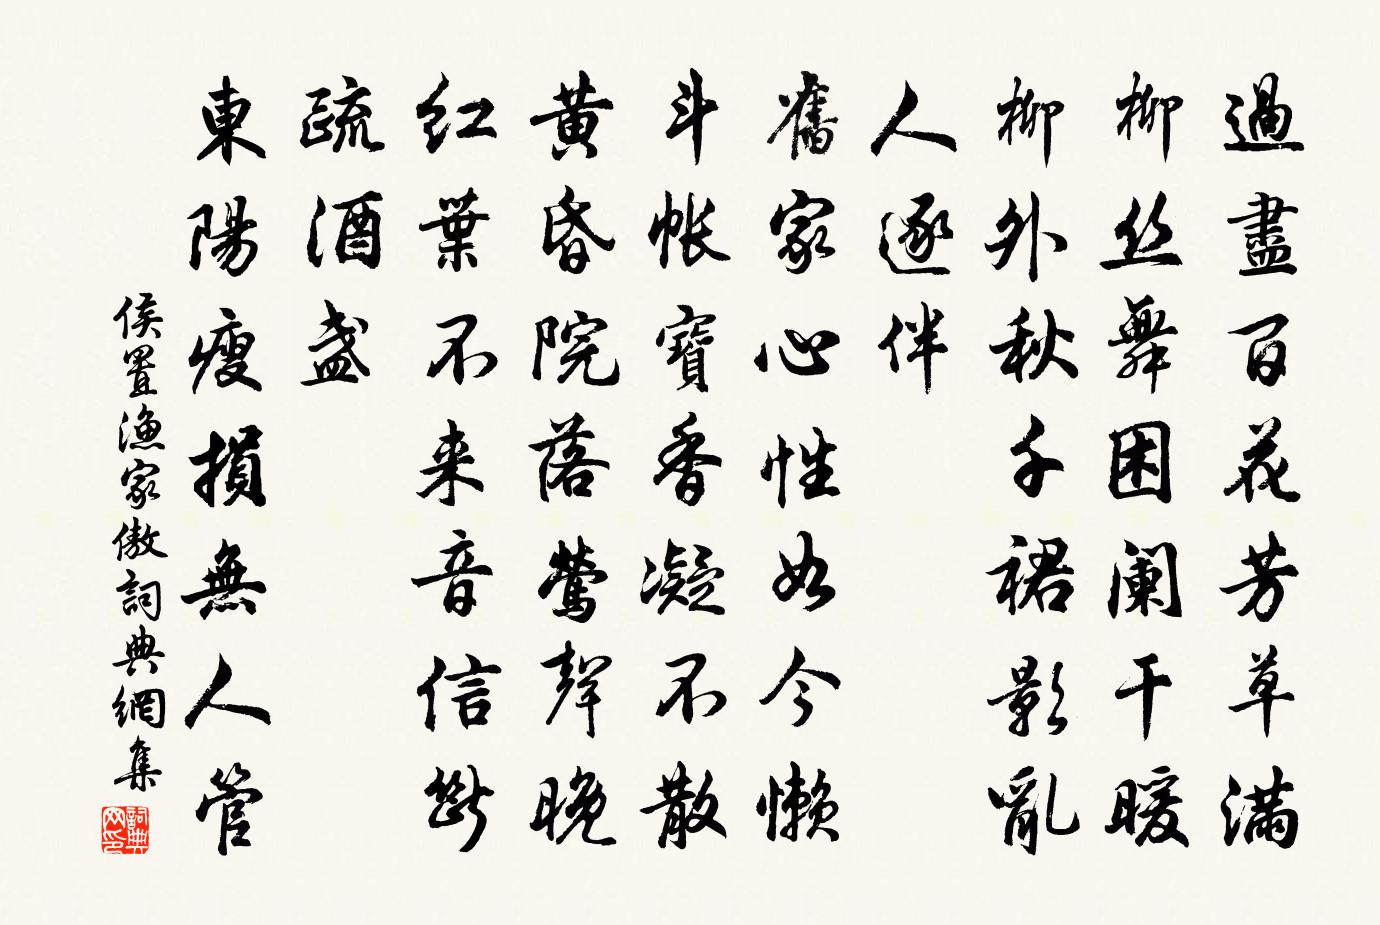 過盡百花芳草滿
柳丝舞困阑干暖
柳外秋千裙影亂
人逐伴
舊家心性如今懒
斗帐寶香凝不散
黄昏院落鶯聲晚
红葉不来音信断
疏酒盏
東陽瘦損無人管
侯置渔家傲詞典網集
詞典网印